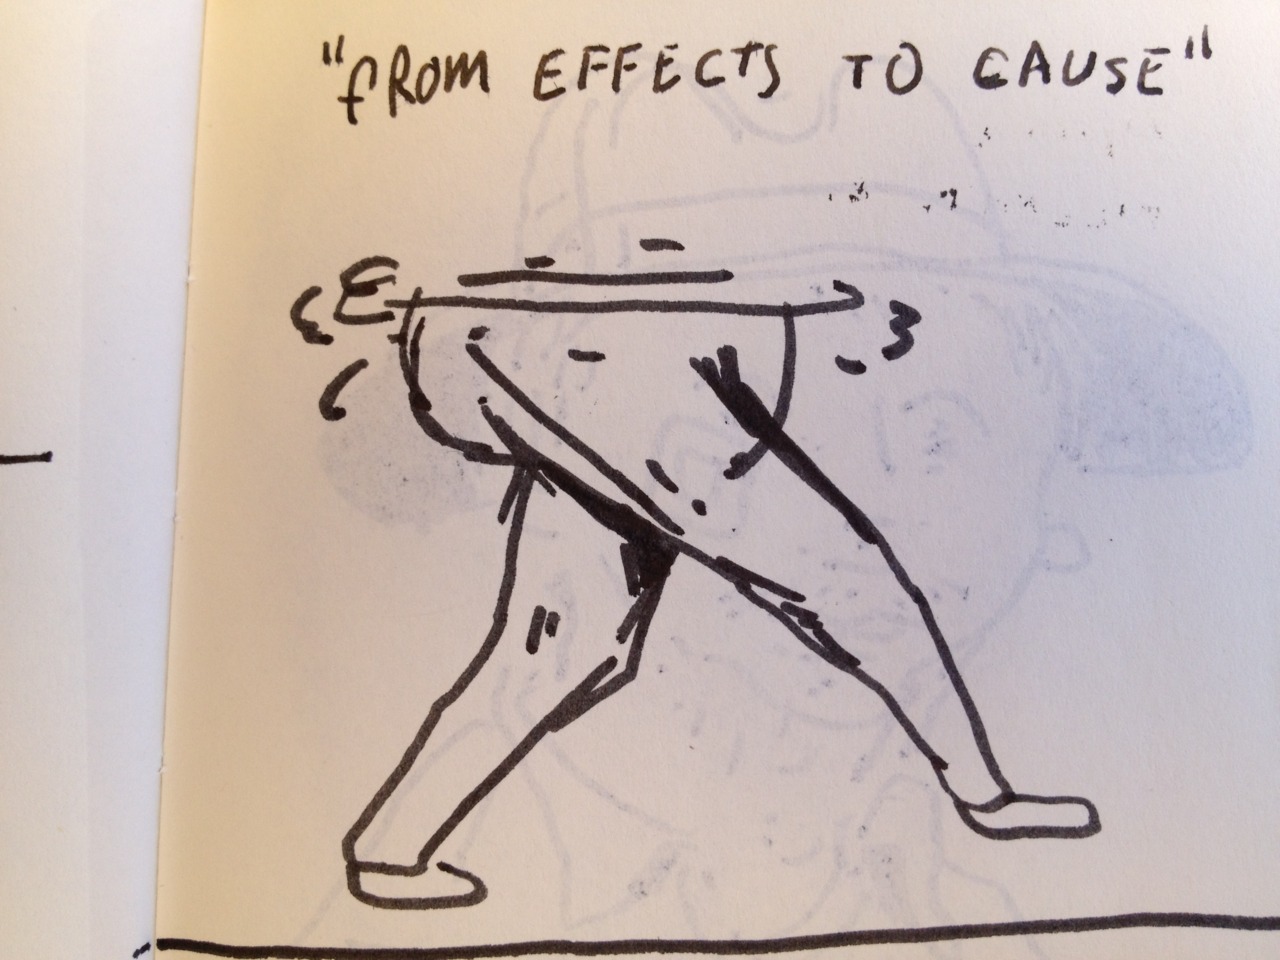 "fROM EFFECTS TO CAUSE"